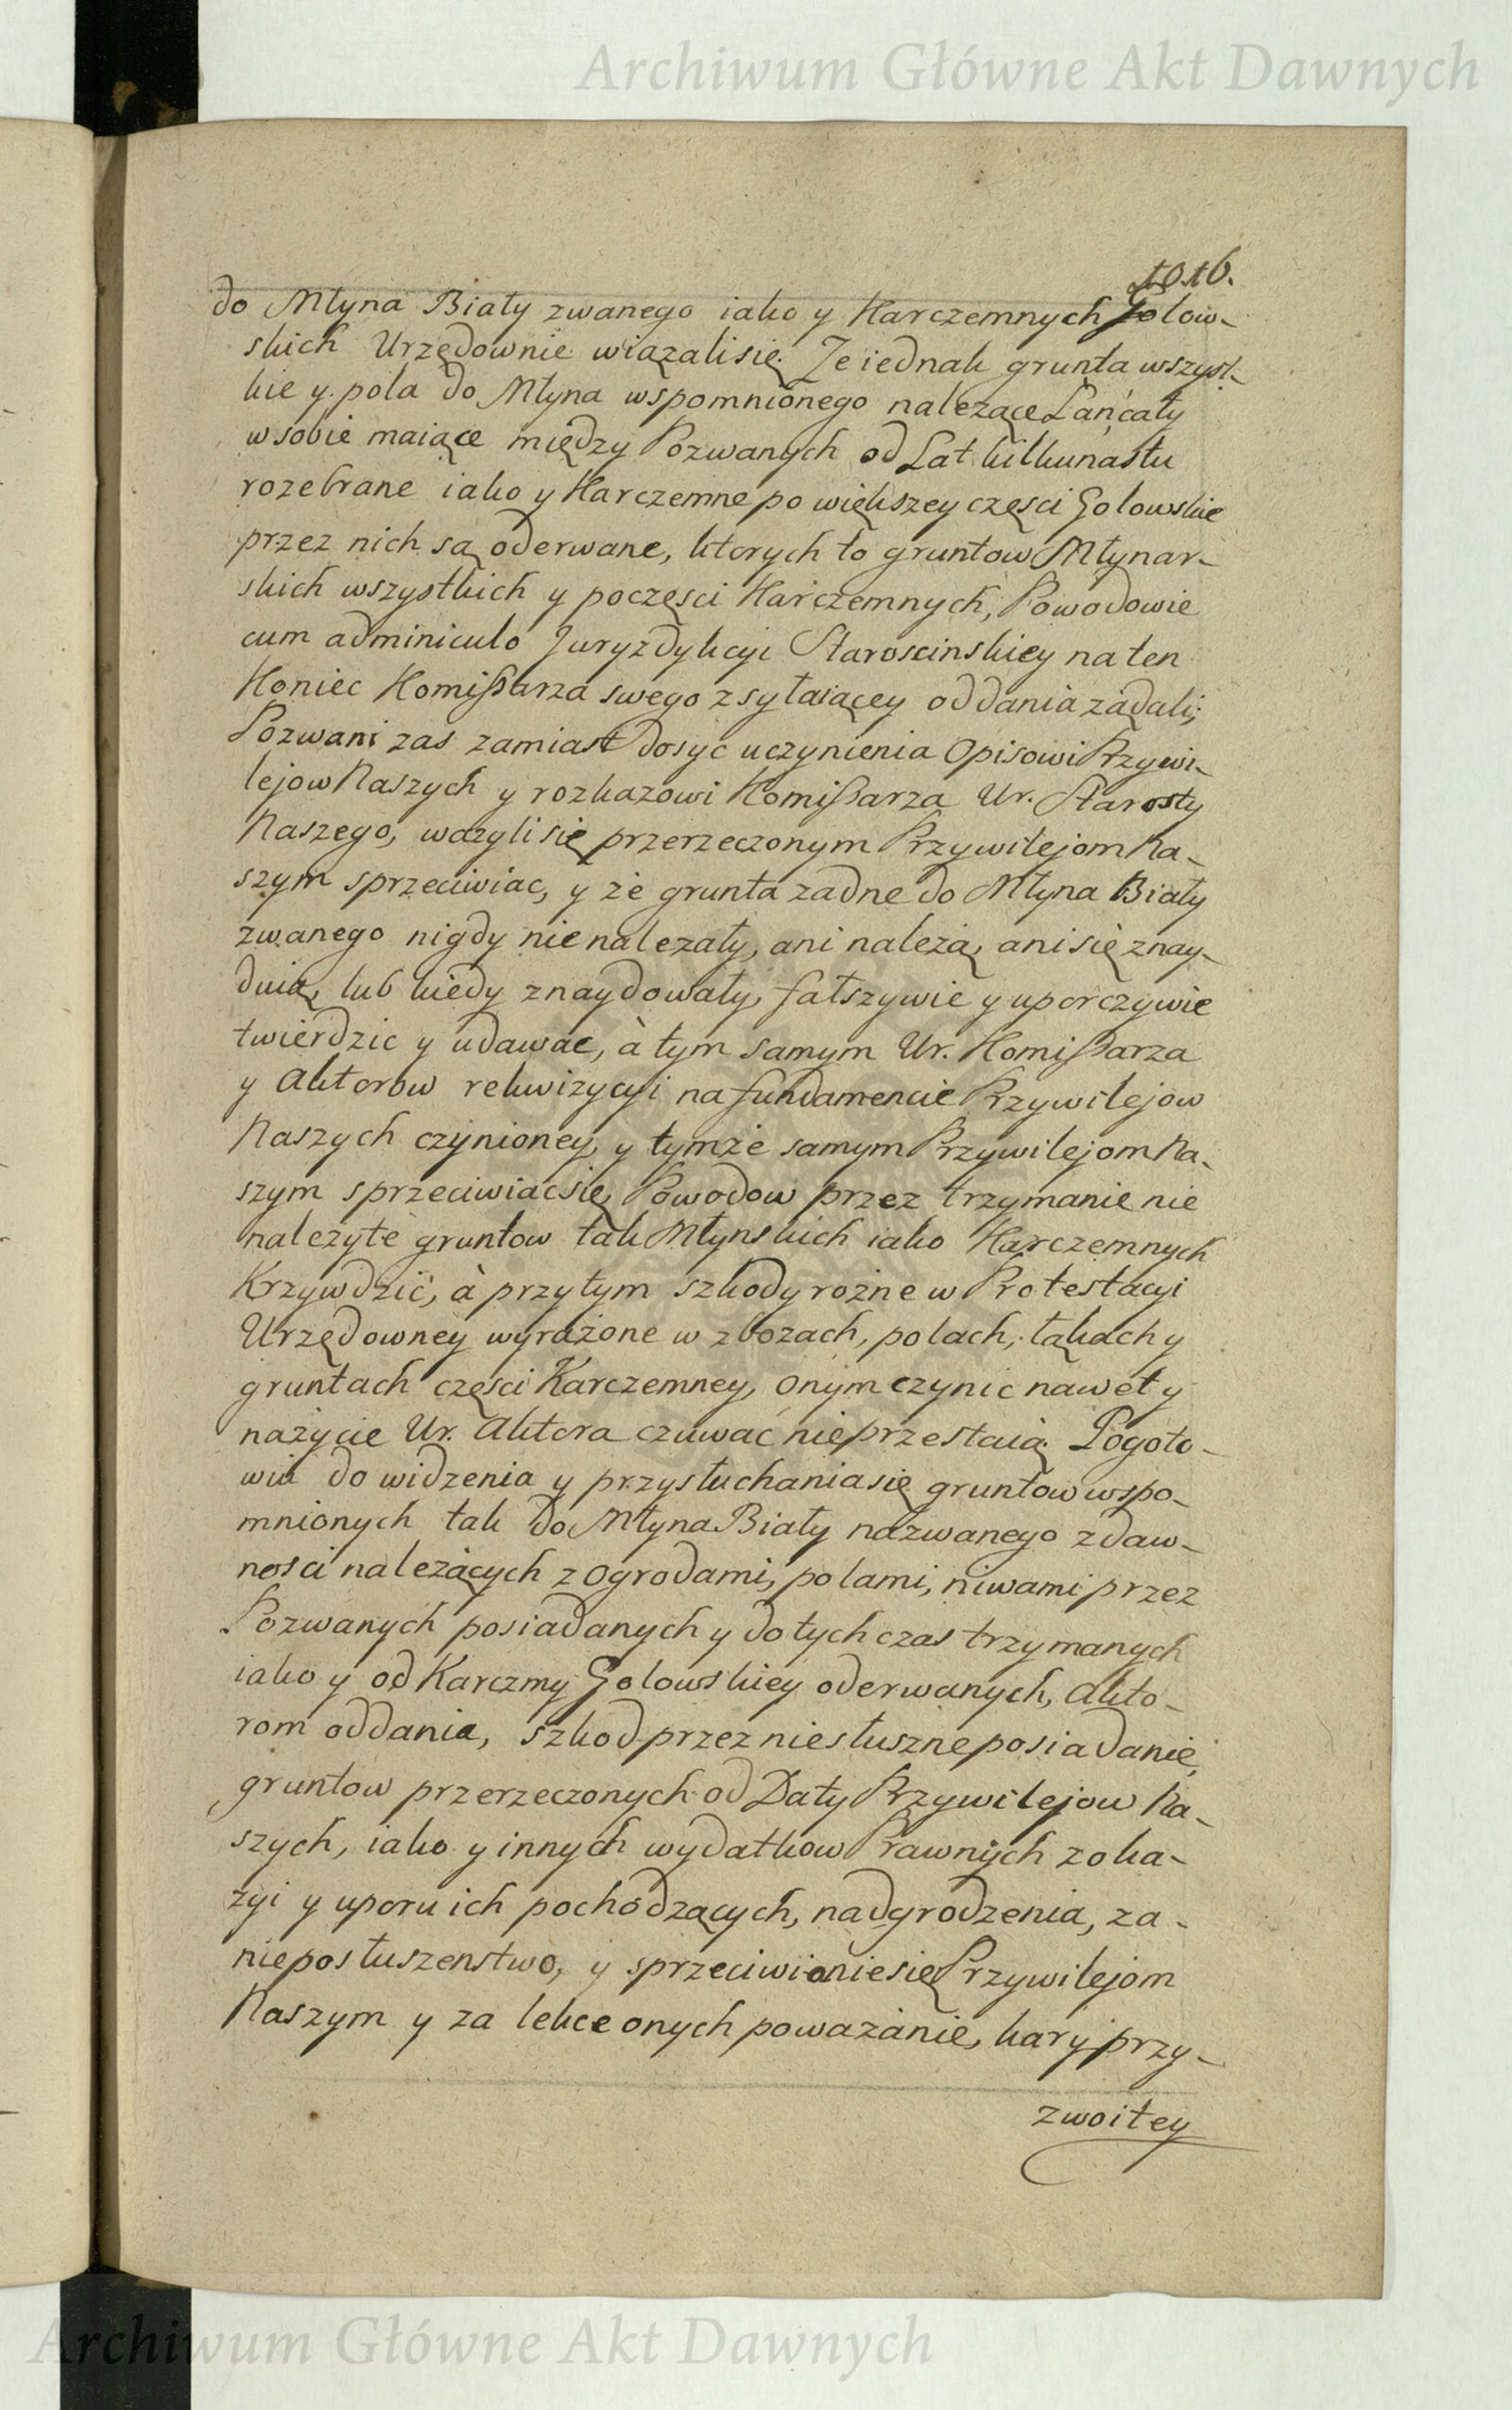 Archiwum Główne Akt Dawnych
1016.
do Młyna Biały zwanego iako y Karczemnych Golow-
skich Urzędownie wiązali się. Ze iednak grunta wszyst-
kie y pola do Młyna wspomnionego nalezące Łan cały
w sobie maiące między Pozwanych od Lat kilkunastu
rozebrane iako y Karczemne po większey częsci Golowskie
przez nich są oderwane, ktorych to gruntow Młynar-
skich wszystkich y poczęsci Karczemnych, Powodowie
cum adminiculo Juryzdykcyi Staroscinskiey na ten
Koniec Komißarza swego zsyłaiącey oddania ządali;
Pozwani zas zamiast dosyc uczynienia Opisowi Przywi-
lejow Naszych y rozkazowi Komißarza Ur. Starosty
Naszego, wazyli się przerzeczonym Przywilejom Na-
szym sprzeciwiac, y że grunta zadne do Młyna Biały
zwanego nigdy nie nalezały, ani należą, ani się znay-
duią, lub kiedy znaydowały, fałszywie y uporczywie
twierdzic y udawac, à tym samym Ur. Komißarza
y Aktorow rekwizycyi na fundamencie Przywilejow
Naszych czynioney, y tymże samym Przywilejom Na-
szym sprzeciwiac się, Powodow przez trzymanie nie
należyte gruntow tak Młynskich iako Karczemnych
Krzywdzić, à przy tym szkody rożne w Protestacyi
Urzędowney wyrażone w zbozach, polach, łąkach y
gruntach częsci Karczemney, onym czynic nawet y
na życie Ur. Aktora czuwać nie przestaią. Pogoto-
wiu do widzenia y przysłuchania się gruntow wspo-
mnionych tak do Młyna Biały nazwanego zdaw-
nosci należących z ogrodami, polami, niwami przez
Pozwanych posiadanych y dotychczas trzymanych
iako y od Karczmy Golowskiey oderwanych, Akto-
rom oddania, szkod przez niesłuszne posiadanie,
gruntow przerzeczonych od Daty Przywilejow Na-
szych, iako y innych wydatkow Prawnych z oka-
zyi y uporu ich pochodzących, nadgrodzenia, za-
nieposłuszenstwo, y sprzeciwienie się Przywilejom
Naszym y za lekce onych poważanie, kary przy-
zwoitey
Archiwum Główne Akt Dawnych